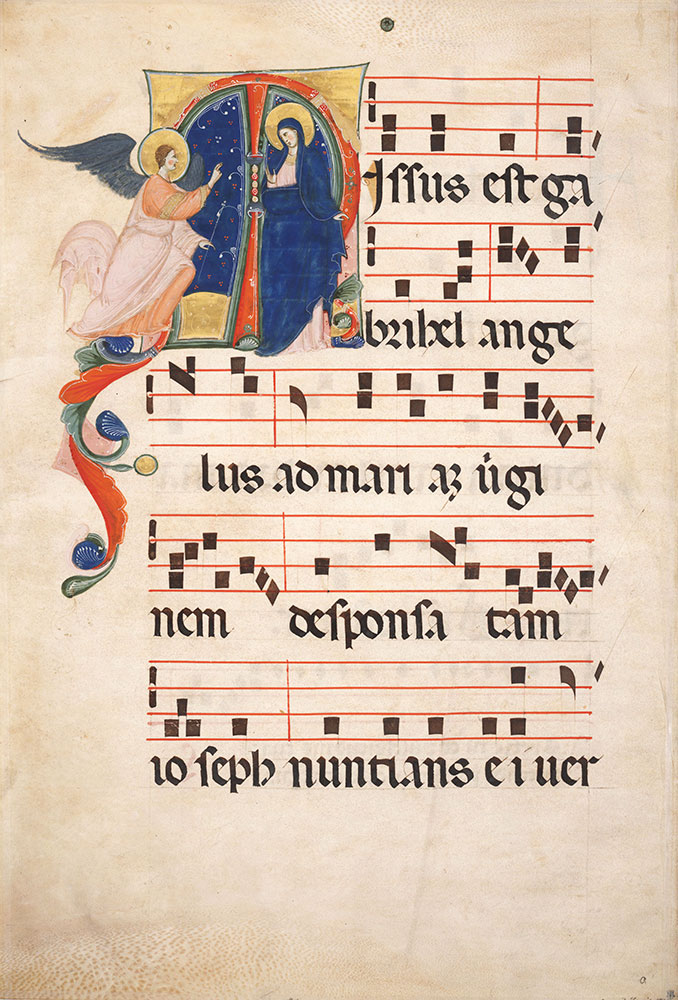 Missus est ga
brihel ange
lus ad mari aꝫ ũgi
nem desponsa tam
io seph nuntians e i uer